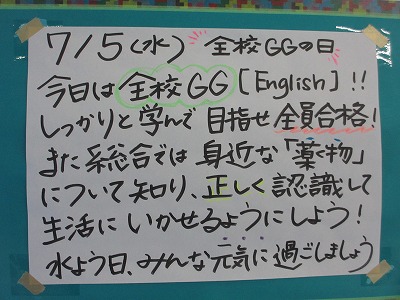 7/5(水) 全校GGの日
今日は全校GG[English]!!
しっかりと学んで目指せ全員合格!
また総合では身近な「薬物」
について知り、正しく認識して
生活にいかせるようにしよう!
水よう日、みんな元気に過ごしましょう